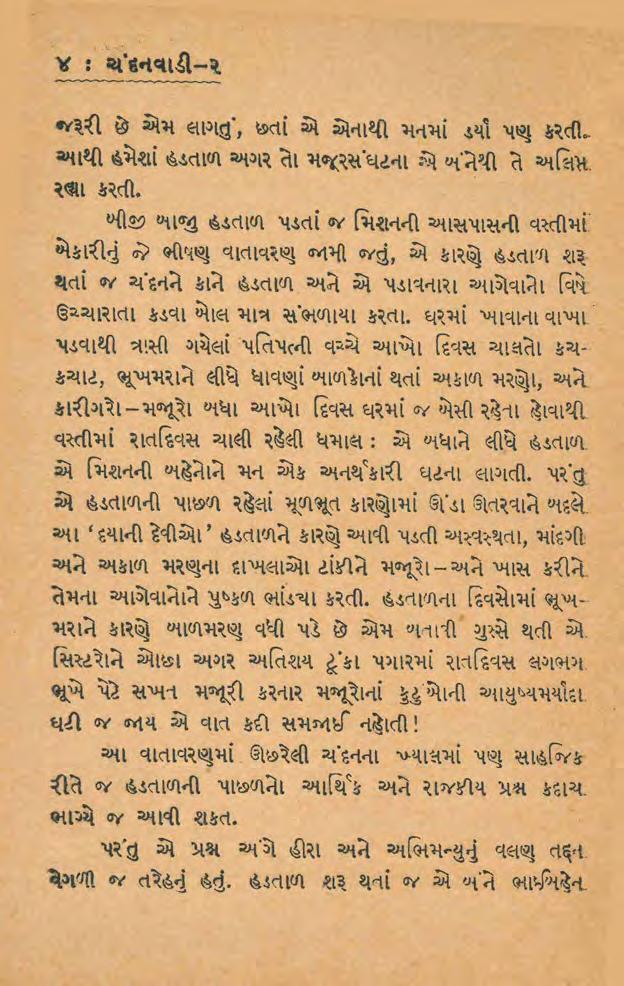 ૪ : ચંદનવાડી–૨
જરૂરી છે એમ લાગતું, છતાં એ એનાથી મનમાં ડર્યા પણ કરતી.
આથી હમેશાં હડતાળ અગર તો મજૂરસંઘટના એ બંનેથી તે અલિપ્ત
રહ્યા કરતી.
બીજી બાજુ હડતાળ પડતાં જ મિશનની આસપાસની વસ્તીમાં
બેકારીનું જે ભીષણ વાતાવરણ જામી જતું, એ કારણે હડતાળ શરૂ
થતાં જ ચંદનને કાને હડતાળ અને એ પડાવનારા આગેવાનો વિષે
ઉચ્ચારાતા કડવા બોલ માત્ર સંભળાયા કરતા. ઘરમાં ખાવાના વાખા
પડવાથી ત્રાસી ગયેલાં પતિપત્ની વચ્ચે આખો દિવસ ચાલતો કચ-
કચાટ, ભૂખમરાને લીધે ધાવણાં બાળકોનાં થતાં અકાળ મરણો, અને
કારીગરો–મજૂરો બધા આખો દિવસ ઘરમાં જ બેસી રહેતા હોવાથી
વસ્તીમાં રાતદિવસ ચાલી રહેલી ધમાલ : એ બધાને લીધે હડતાળ
એ મિશનની બહેનોને મન એક અનર્થકારી ઘટના લાગતી. પરંતુ
એ હડતાળની પાછળ રહેલાં મૂળભૂત કારણોમાં ઊંડા ઊતરવાને બદલે
આ ‘દયાની દેવીઓ’ હડતાળને કારણે આવી પડતી અસ્વસ્થતા, માંદગી
અને અકાળ મરણના દાખલાઓ ટાંકીને મજૂરો–અને ખાસ કરીને
તેમના આગેવાનોને પુષ્કળ ભાંડયા કરતી. હડતાળના દિવસોમાં ભૂખ-
મરાને કારણે બાળમરણ વધી પડે છે એમ બતાવી ગુસ્સે થતી એ
સિસ્ટરોને ઓછા અગર અતિશય ટૂંકા પગારમાં રાતદિવસ લગભગ
ભૂખે પેટે સખત મજૂરી કરનાર મજૂરોનાં કુટુંબોની આયુષ્યમર્યાદા
ઘટી જ જાય એ વાત કદી સમજાઈ નહોતી!
આ વાતાવરણમાં ઊછરેલી ચંદનના ખ્યાલમાં પણ સાહજિક
રીતે જ હડતાળની પાછળનો આર્થિક અને રાજકીય પ્રશ્ન કદાચ
ભાગ્યે જ આવી શકત.
પરંતુ એ પ્રશ્ન અંગે હીરા અને અભિમન્યુનું વલણ તદ્દન
વેગળી જ તરેહનું હતું. હડતાળ શરૂ થતાં જ એ બંને ભાઈબહેન